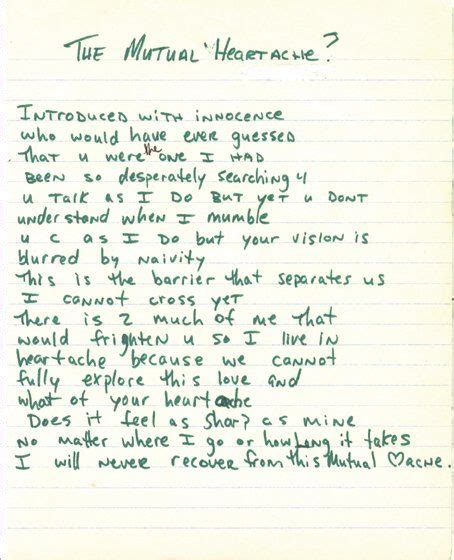 THE MUTUAL HEARTACHE?
INTRODUCED WITH INNOCENCE
who would have ever guessed
THAT U WERE the ONE I HAD
BEEN so desperately searching 4
U TALK AS I DO BUT YET U DONT
understand when I mumble
U C AS I DO but your vision is
blurred by NAIVITY
This is the barrier that separates us
I CANNOT CROSS YET
There is 2 much of me THAT
would frighten u so I live in
heartache because we CANNOT
fully explore this love and
what of your heartache
Does it feel as Sharp as mine
No matter where I go or how long it takes
I will never recover from this Mutual ♡ACHE.